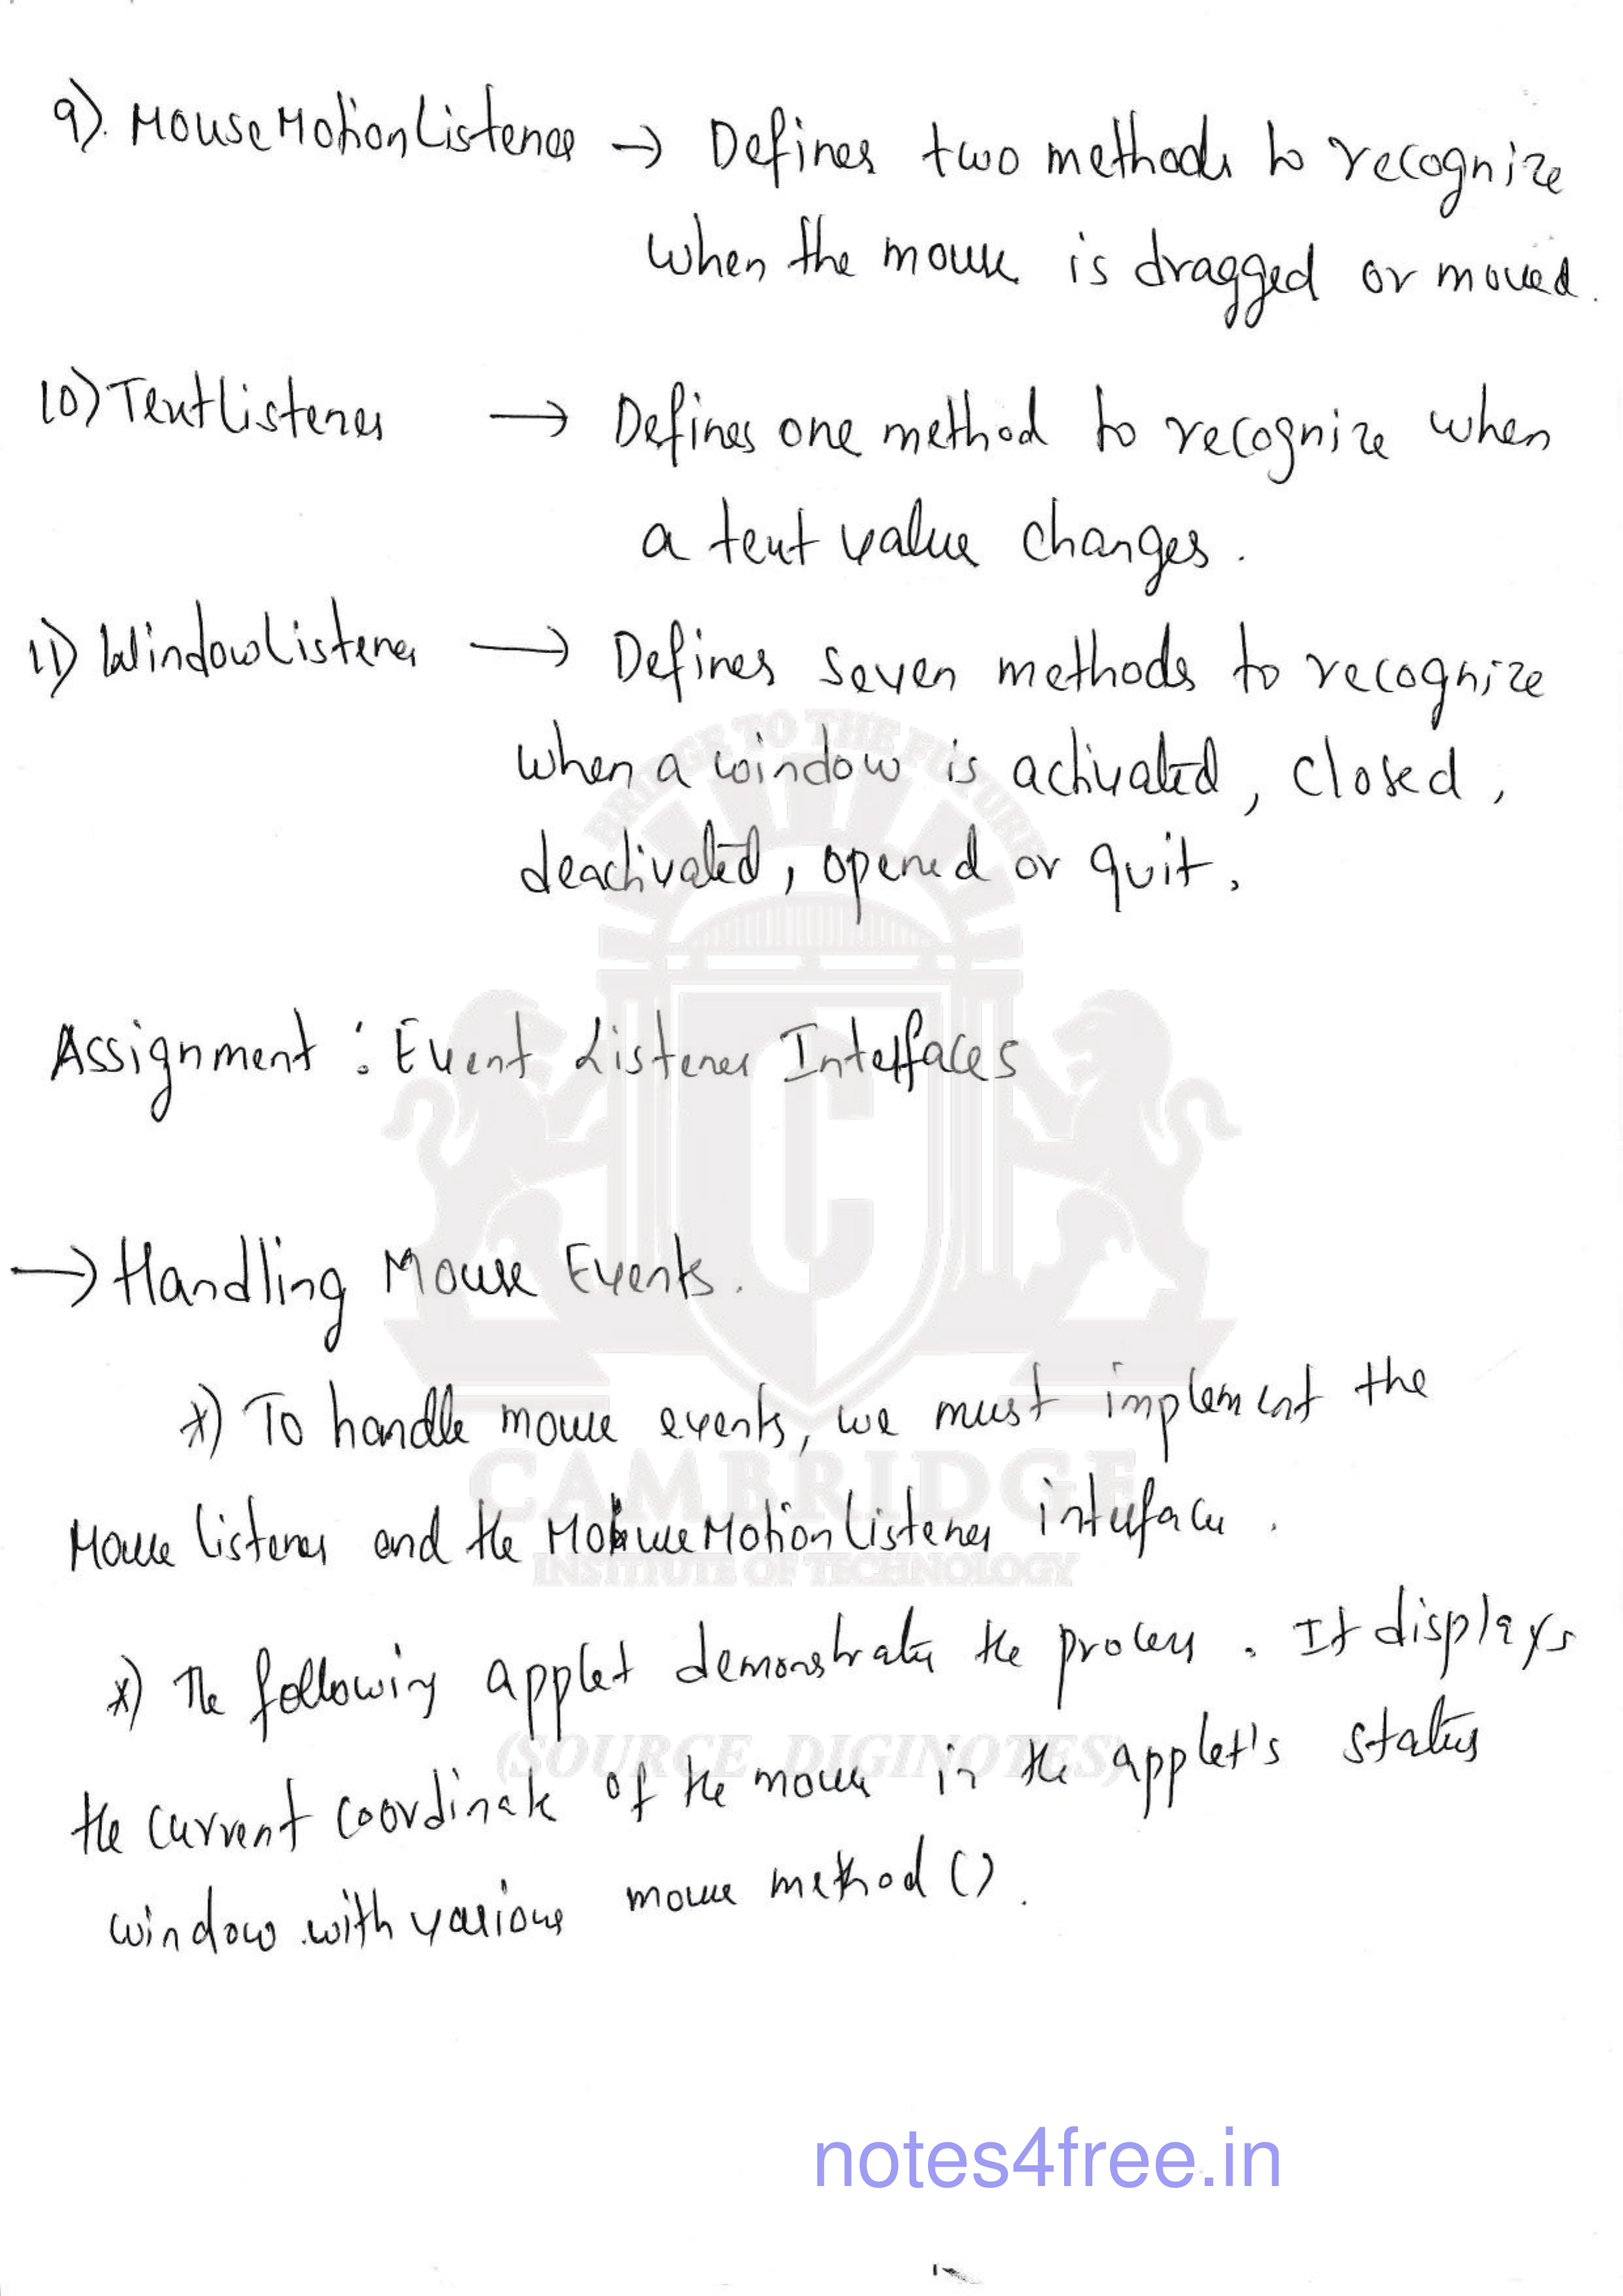 9). MouseMotionListener → Defines two methods to recognize
when the mouse is dragged or moved.
10) TextListener → Defines one method to recognize when
a text value changes.
11) WindowListener → Defines seven methods to recognize
when a window is activated, closed,
deactivated, opened or quit.
BRIDGE TO THE FUTURE
Assignment : Event Listener Interfaces
C
→ Handling Mouse Events.
*) To handle mouse events, we must implement the
CAMBRIDGE
Mouse listener and the MouseMotionListener interface.
INSTITUTE OF TECHNOLOGY
*) The following applet demonstrates the process. It displays
(SOURCE DIGINOTES)
the current coordinate of the mouse in the applet's status
window with various mouse method ().
notes4free.in